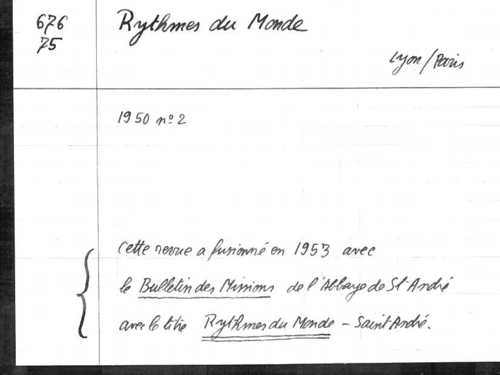 676
75
Rythmes du Monde
Lyon/Paris
1950 nº 2
Cette revue a fusionné en 1953 avec
le Bulletin des Missions de l'Abbaye de St André
avec le titre Rythmes du Monde - Saint André.